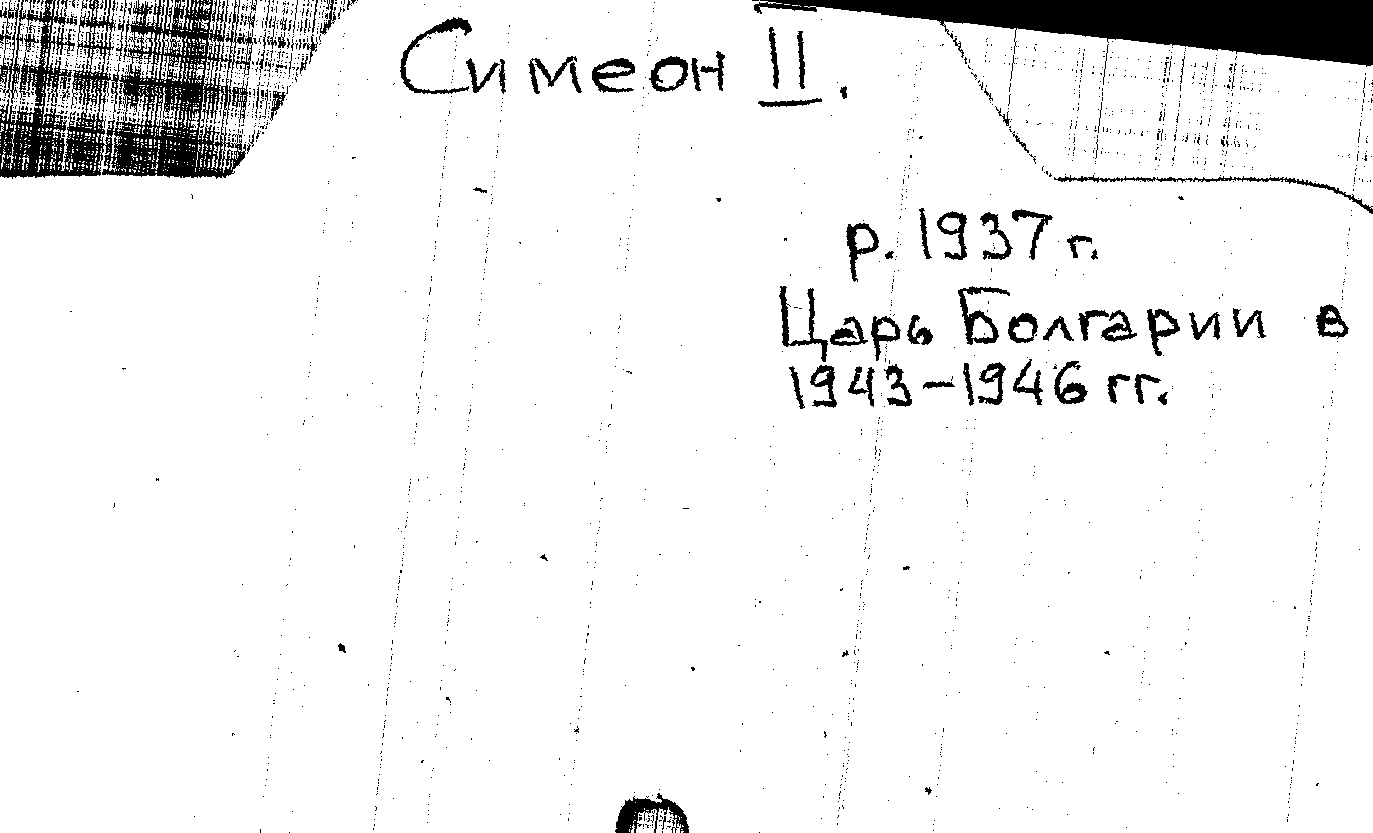 Симеон II.
р. 1937 г.
Царь Болгарии в
1943-1946 гг.